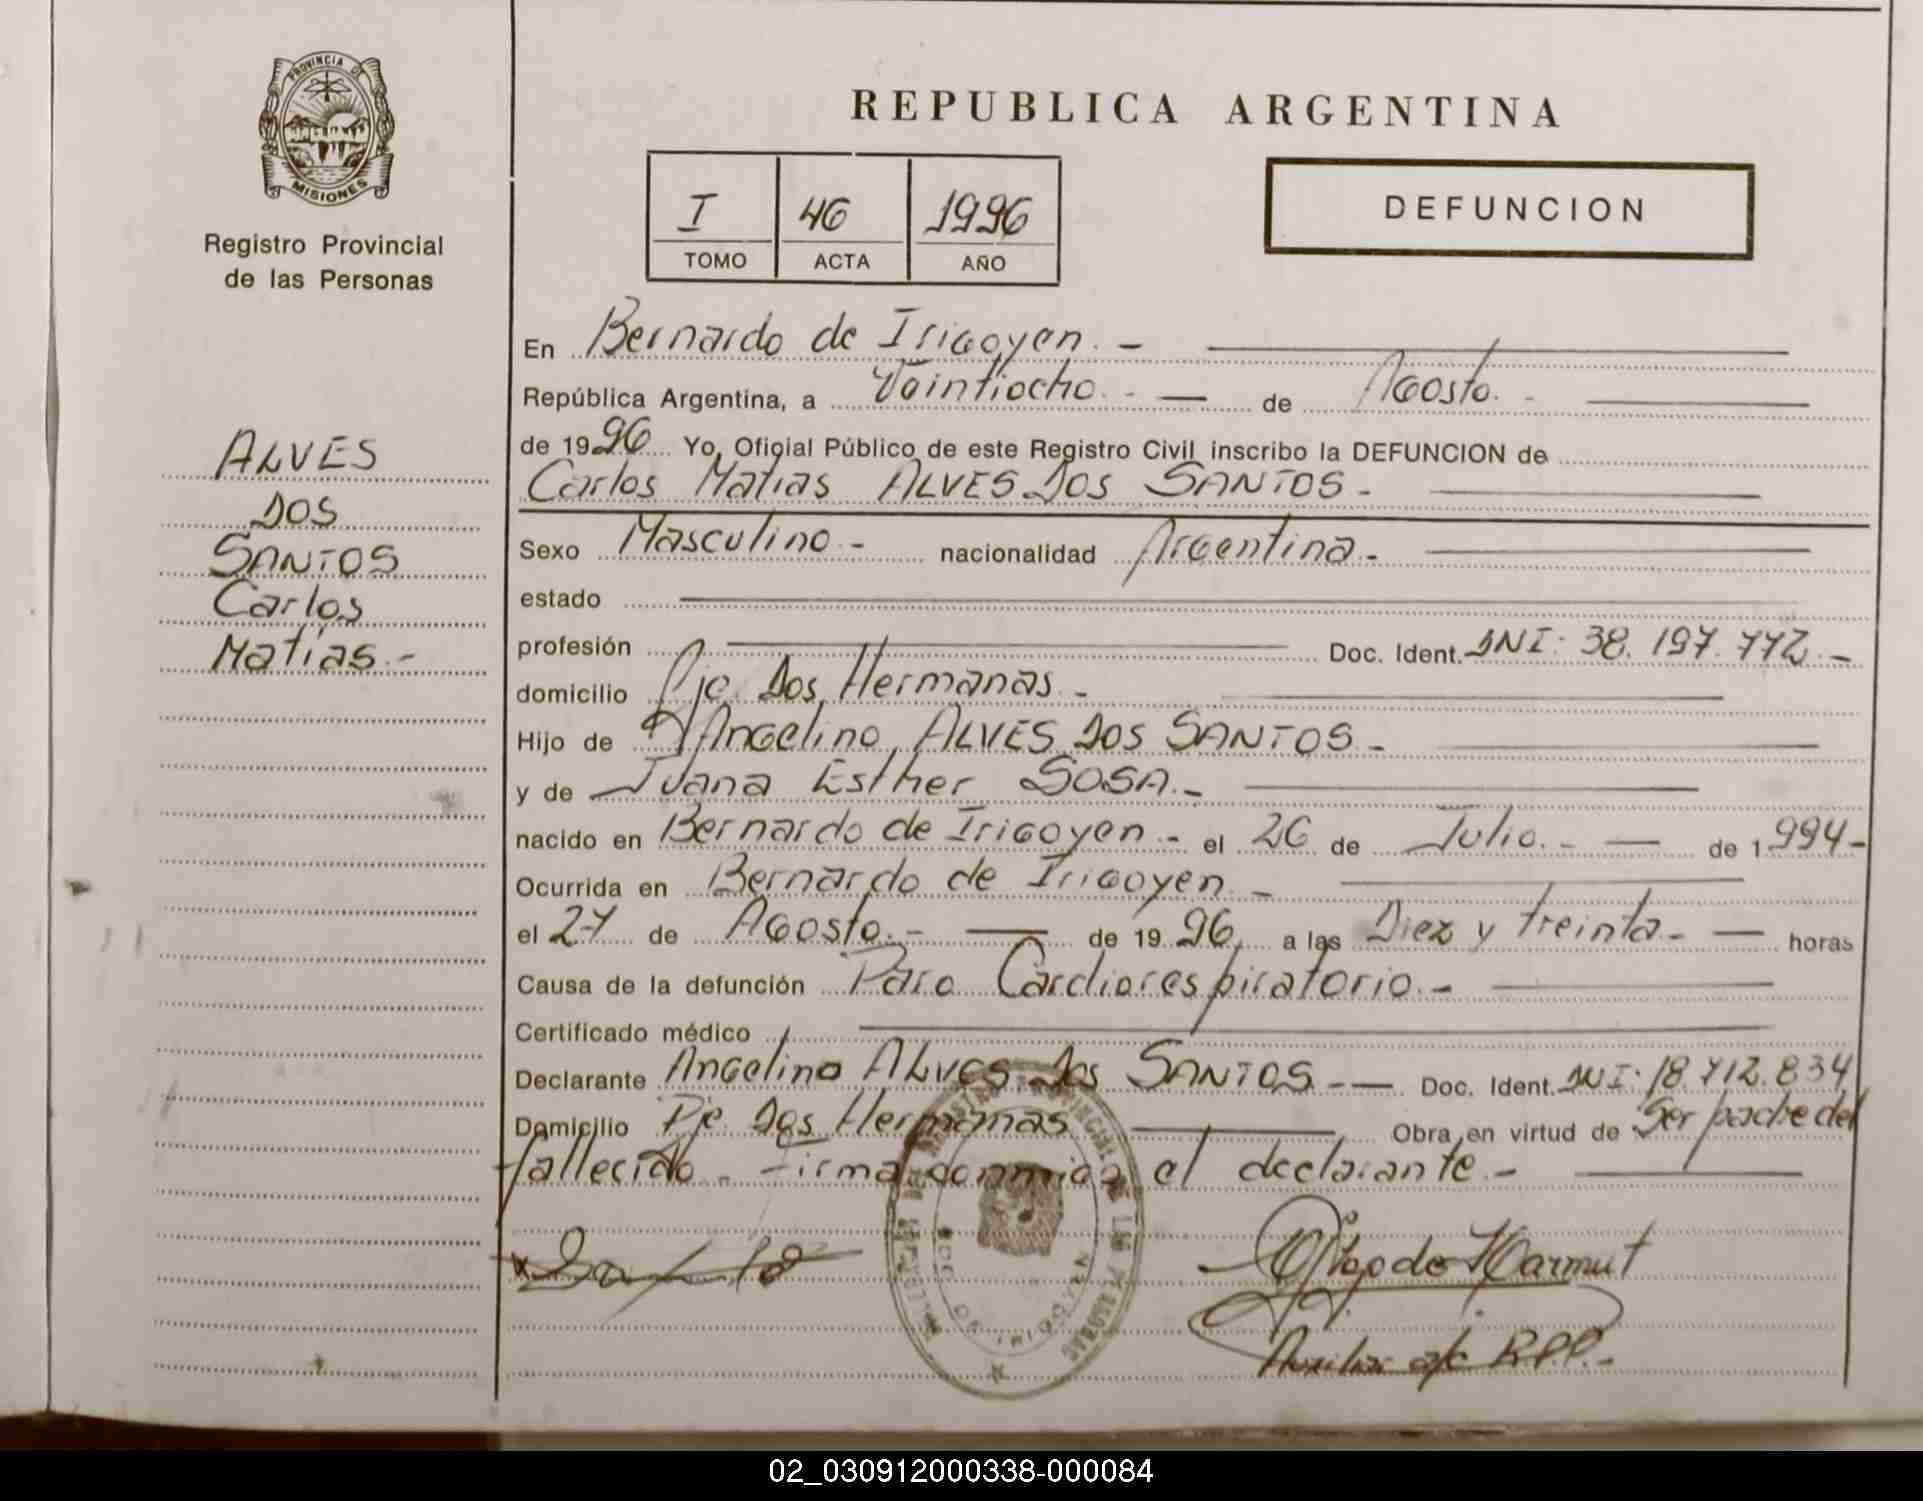 PROVINCIA DE
MISIONES
Registro Provincial
de las Personas
ALVES
DOS
SANTOS
Carlos
Matías.-
REPUBLICA ARGENTINA
I 46 1996
TOMO ACTA AÑO
DEFUNCION
En Bernardo de Irigoyen.-
República Argentina, a Veintiocho.- de Agosto.-
de 1996 Yo, Oficial Público de este Registro Civil inscribo la DEFUNCION de
Carlos Matias ALVES DOS SANTOS.-
Sexo Masculino.- nacionalidad Argentina.-
estado
profesión Doc. Ident. DNI: 38.197.772.-
domicilio Pje. Dos Hermanas.-
Hijo de Angelino ALVES DOS SANTOS.-
y de Juana Esther SOSA.-
nacido en Bernardo de Irigoyen.- el 26 de Julio.- de 1994-
Ocurrida en Bernardo de Irigoyen.-
el 27 de Agosto.- de 1996, a las Diez y treinta.- horas
Causa de la defunción Paro Cardiorespiratorio.-
Certificado médico
Declarante Angelino ALVES DOS SANTOS.- Doc. Ident. DNI: 18.712.834
Domicilio Pje. Dos Hermanas Obra en virtud de Ser padre del
fallecido.- Firma conmigo el declarante.-
Auxiliar a/c R.P.P.-
02_030912000338-000084